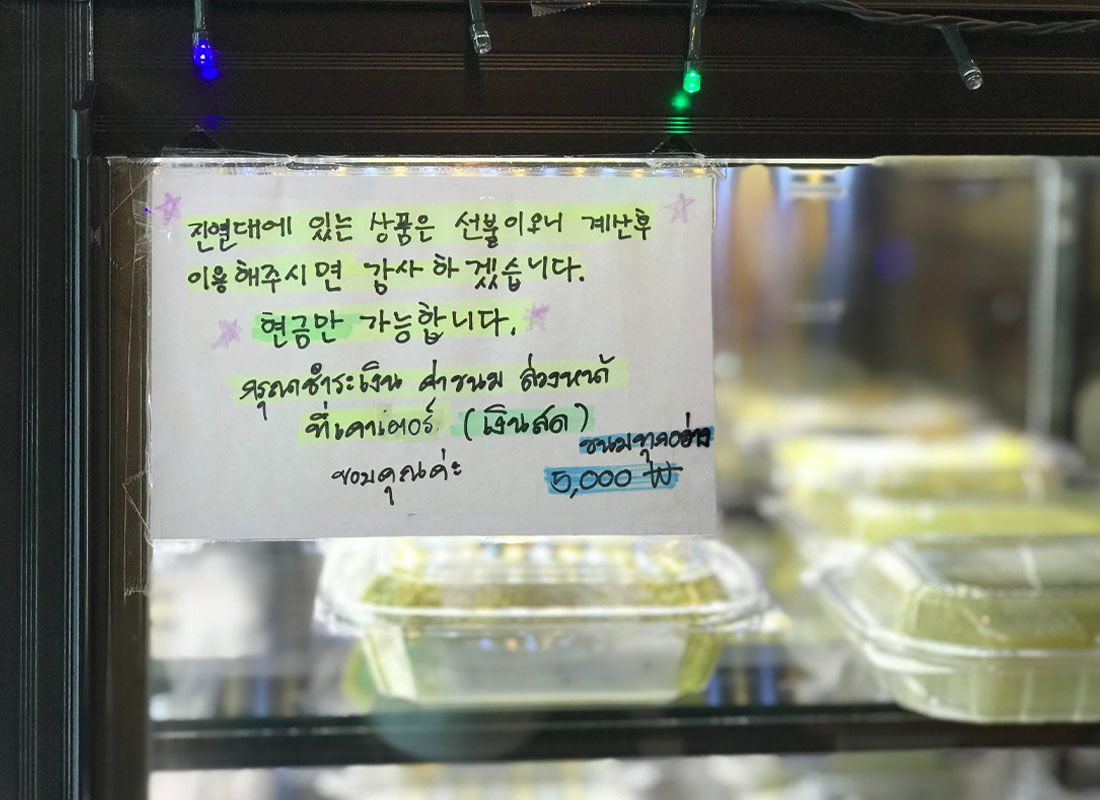 진열대에 있는 상품은 선불이오니 계산후
이용해주시면 감사하겠습니다.
현금만 가능합니다.
กรุณาชำระเงิน ค่าขนม ล่วงหน้า
ที่เคาเตอร์ (เงินสด)
ขนมทุกอย่าง
ขอบคุณค่ะ
5,000 ₩